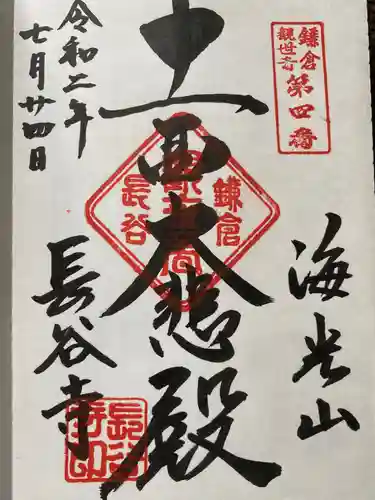 鎌倉
観世音
第四番
海光山
十一面大悲殿
鎌倉
長谷
令和二年
七月廿四日
長谷寺